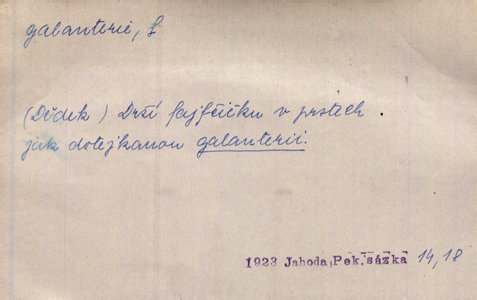 galanterie, f
(Dědek) Drží fajfčičku v prstech
jak dotejkanou galanterii.
1923 Jahoda, Pek. sázka 14, 18